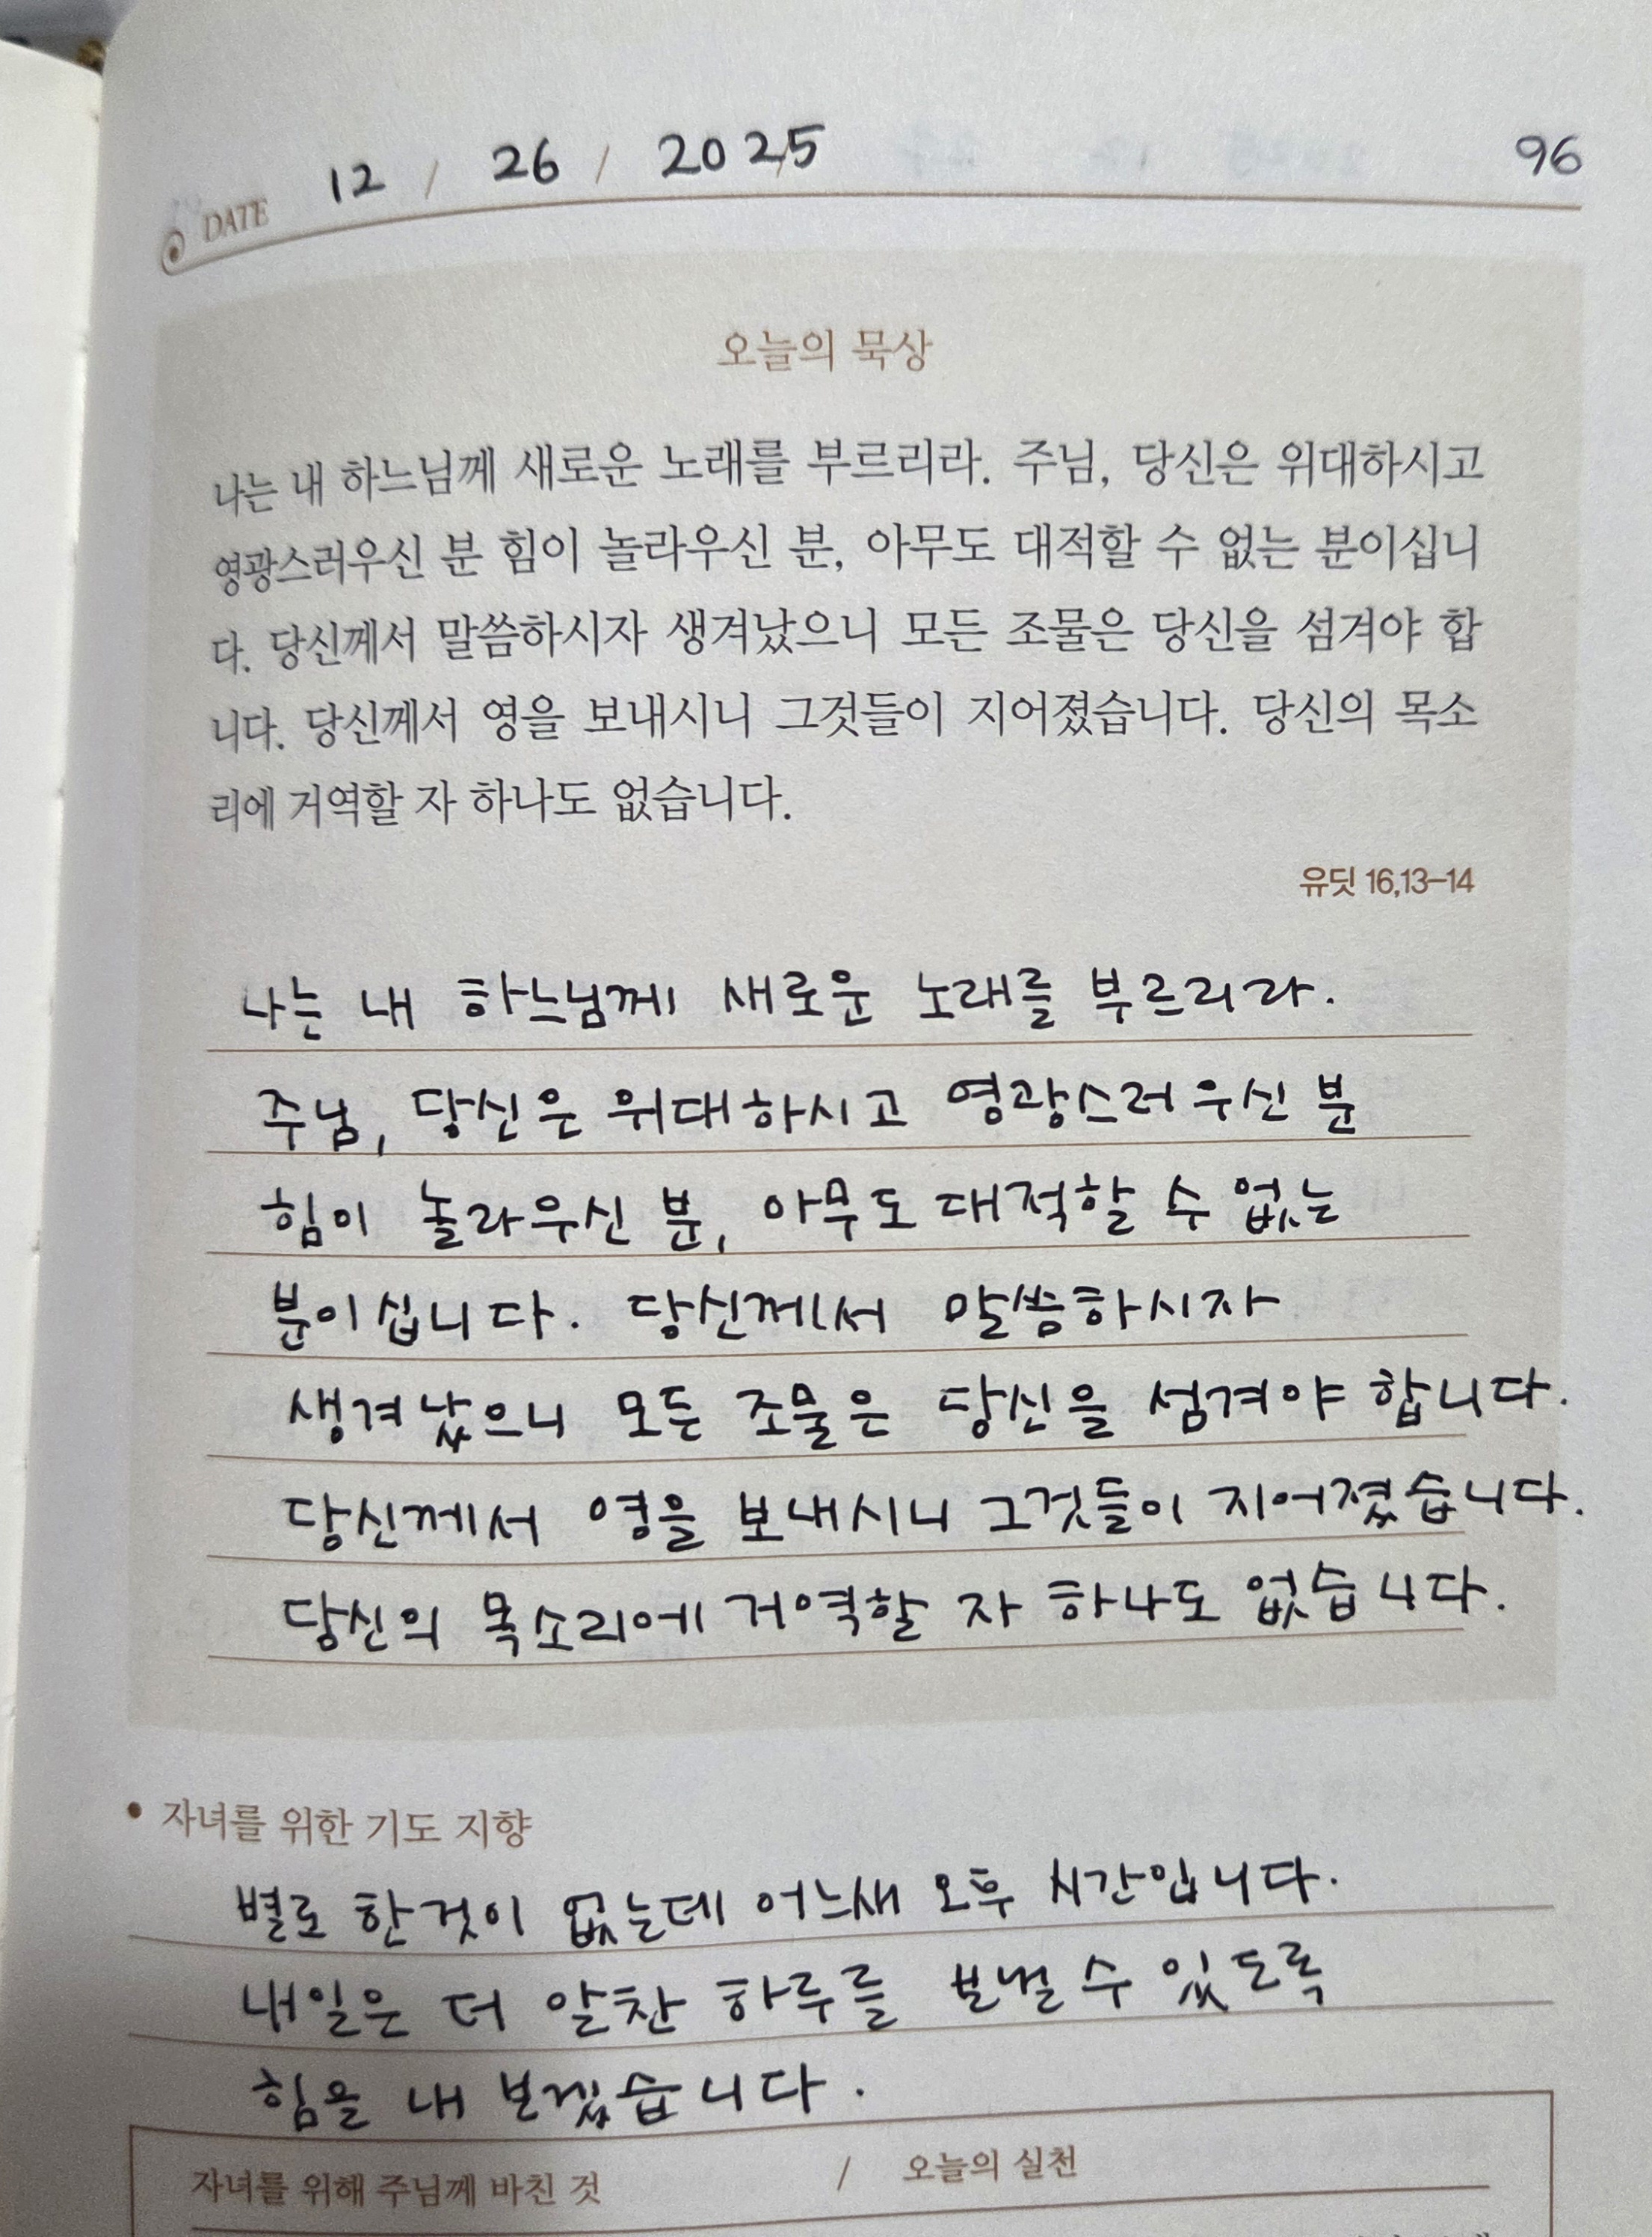 12 / 26 / 2025
96
DATE
오늘의 묵상
나는 내 하느님께 새로운 노래를 부르리라. 주님, 당신은 위대하시고
영광스러우신 분 힘이 놀라우신 분, 아무도 대적할 수 없는 분이십니
다. 당신께서 말씀하시자 생겨났으니 모든 조물은 당신을 섬겨야 합
니다. 당신께서 영을 보내시니 그것들이 지어졌습니다. 당신의 목소
리에 거역할 자 하나도 없습니다.
유딧 16,13-14
나는 내 하느님께 새로운 노래를 부르리라.
주님, 당신은 위대하시고 영광스러우신 분
힘이 놀라우신 분, 아무도 대적할 수 없는
분이십니다. 당신께서 말씀하시자
생겨났으니 모든 조물은 당신을 섬겨야 합니다.
당신께서 영을 보내시니 그것들이 지어졌습니다.
당신의 목소리에 거역할 자 하나도 없습니다.
• 자녀를 위한 기도 지향
별로 한것이 없는데 어느새 오후 시간입니다.
내일은 더 알찬 하루를 보낼 수 있도록
힘을 내 보겠습니다.
자녀를 위해 주님께 바친 것 / 오늘의 실천